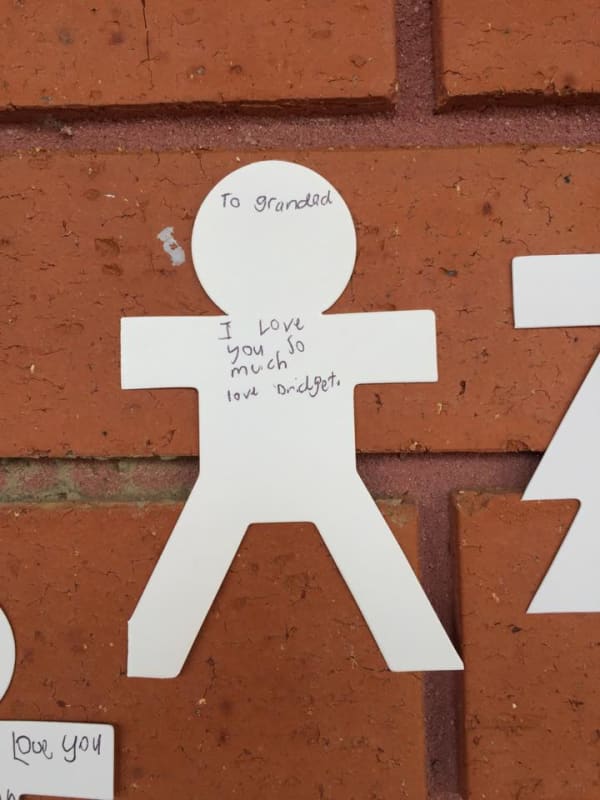 To grandad
I Love
you so
much
love Bridget.
Love you